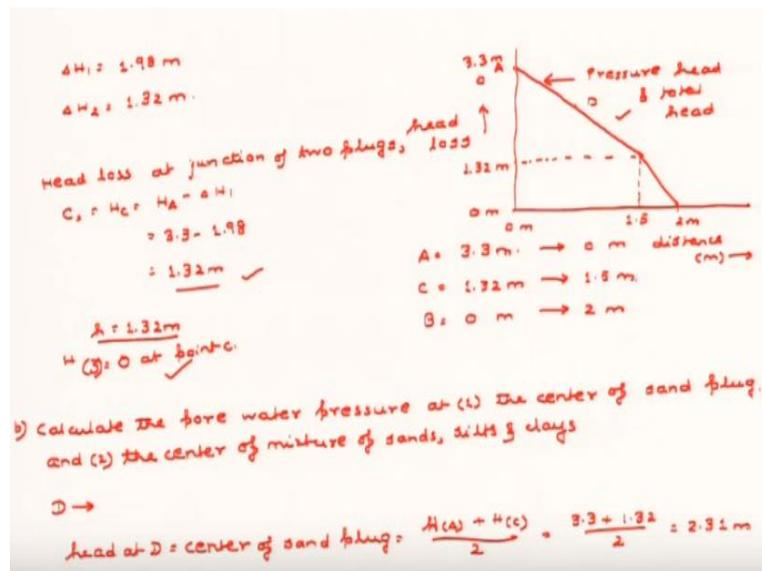 ΔH1 = 1.98 m
ΔH2 = 1.32 m.
Head loss at junction of two plugs,
C, = HC = HA - ΔH1
= 3.3 - 1.98
= 1.32m ✓
h = 1.32m
H (z) = 0 at point c.
3.3 m A
0
← Pressure head
& total
head
head
loss
1.32 m
0 m
0 m
1.5
2m
distance
(m) →
A = 3.3 m. → 0 m
C = 1.32 m → 1.5 m.
B = 0 m → 2 m
b) Calculate the pore water pressure at (1) the center of sand plug.
and (2) the center of mixture of sands, silts & clays
D →
head at D = center of sand plug = H(A) + H(C) / 2 = 3.3 + 1.32 / 2 = 2.31 m